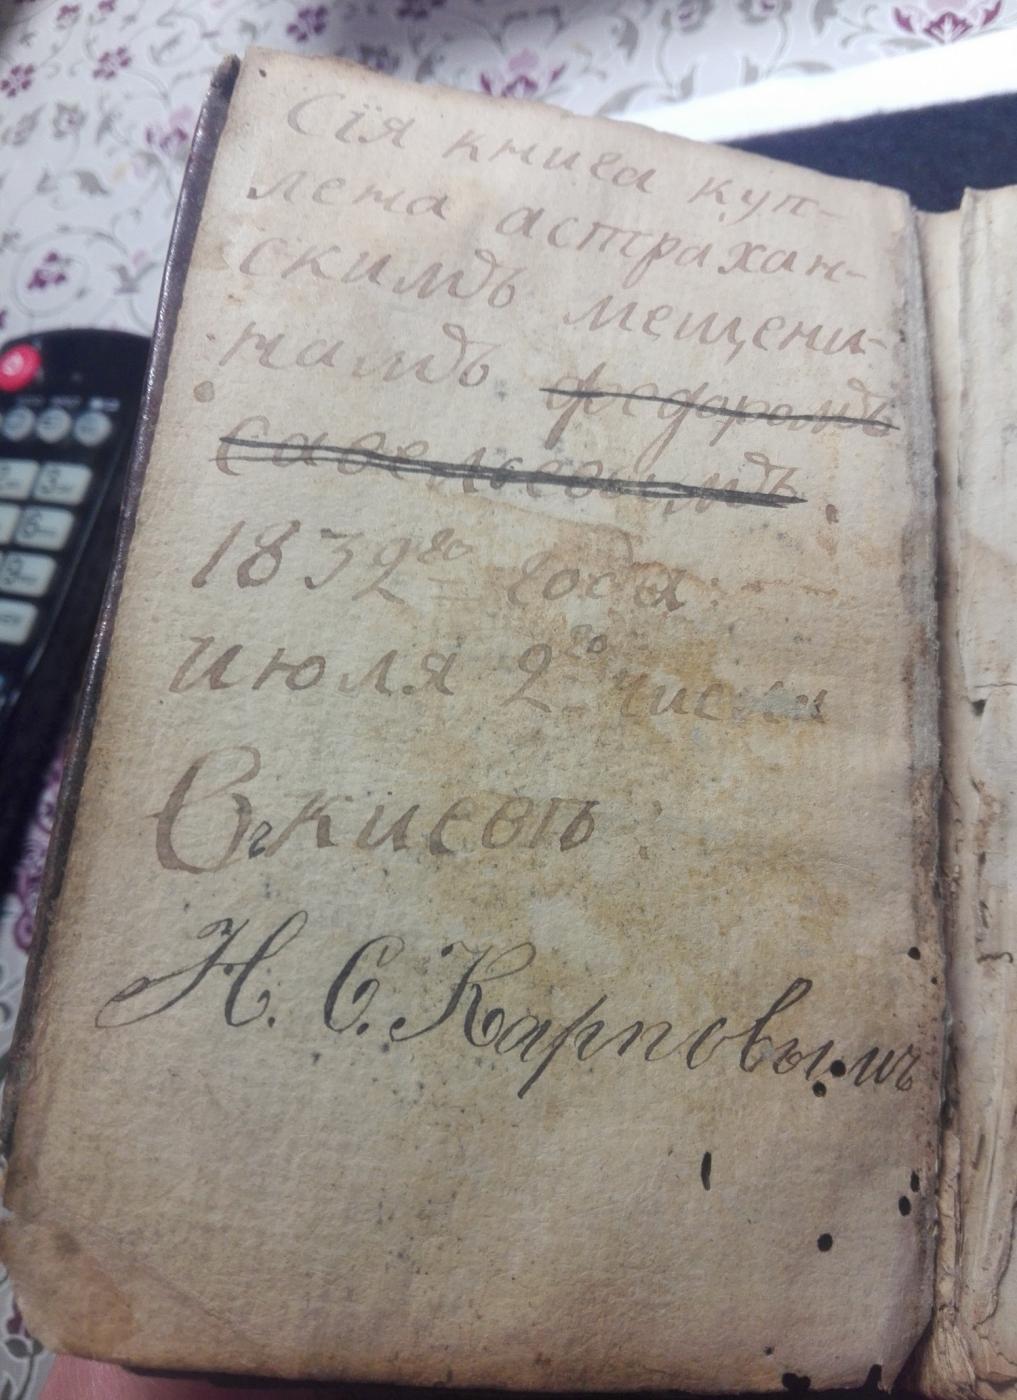 Сія книга куп-
лена астрахан-
скимъ мещени-
намъ федоромъ
Савельевымъ.
1832го года:
июля 2го числа
Н. С. Карповымъ